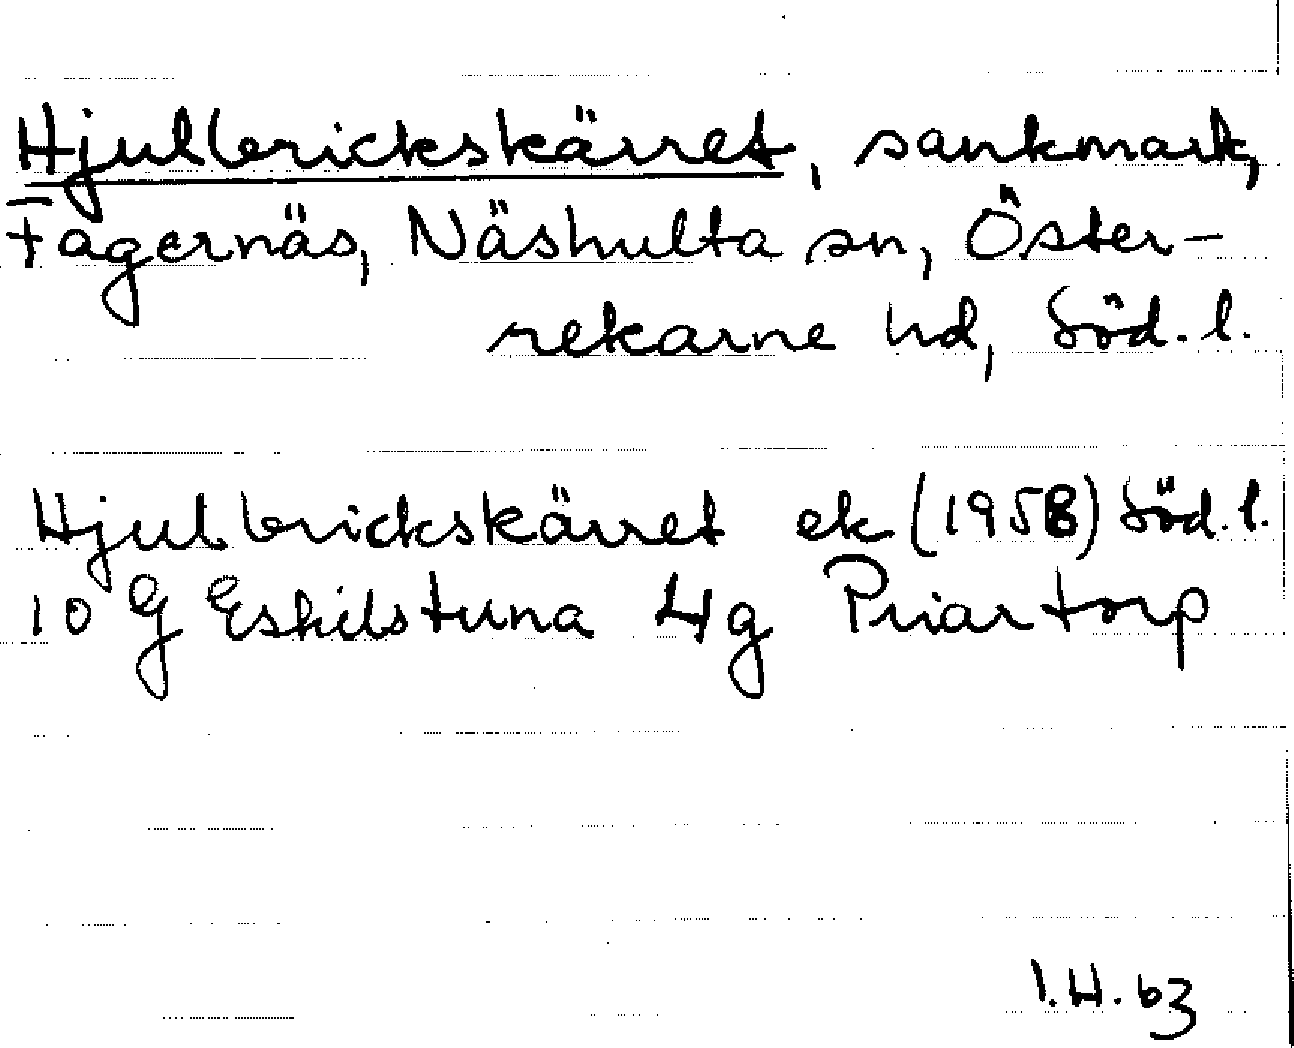 Hjulbrickskärret, sankmark,
Fagernäs, Näshulta sn, Öster-
rekarne hd, Söd. l.
Hjulbrickskärret ek (1958) Söd. l.
10 G Eskilstuna 4g Priartorp
I.H. 63